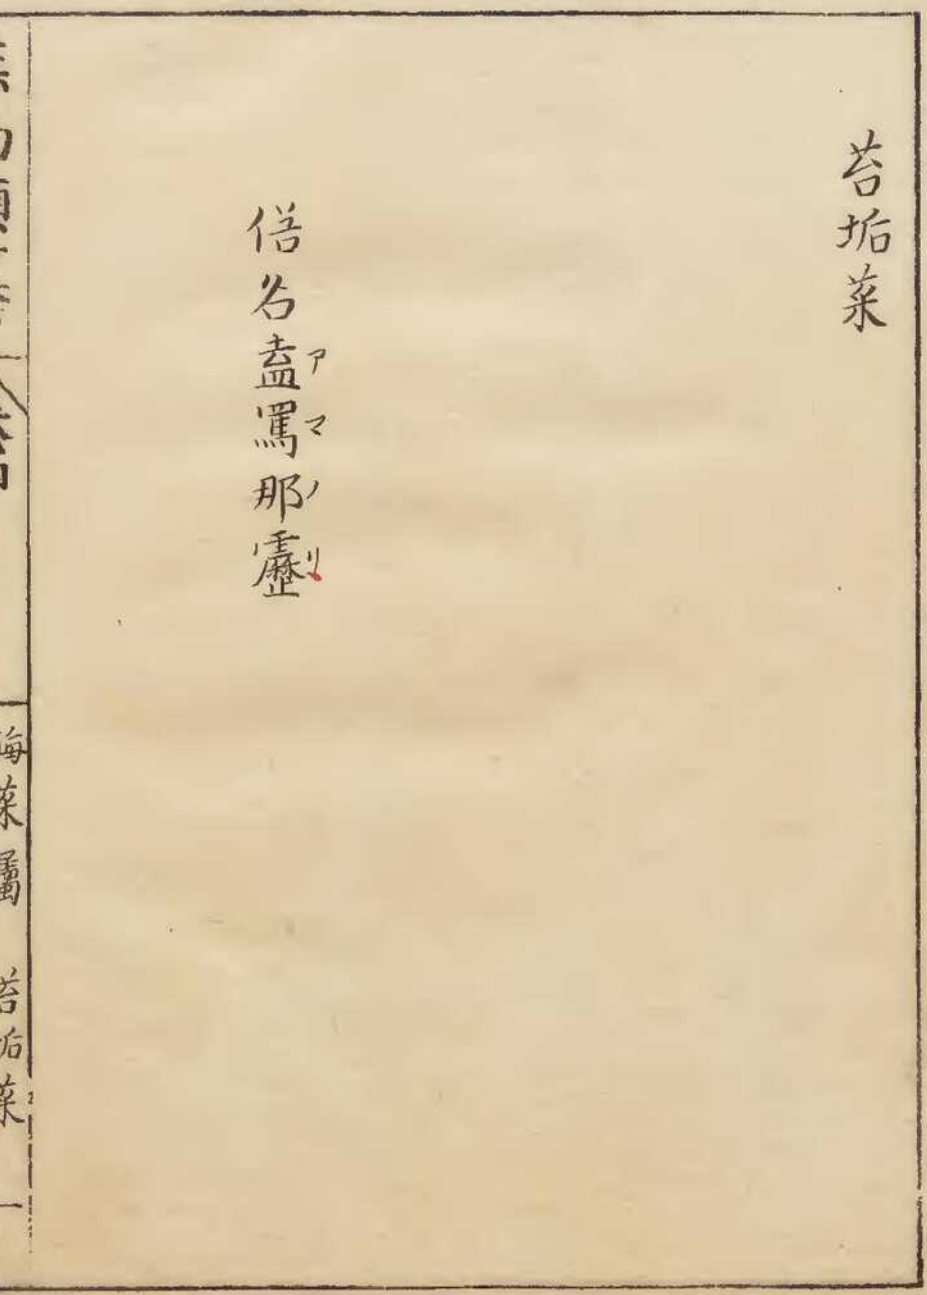 苔垢菜
俗名盍罵那靂
アマノリ
海菜屬 苔垢菜 一